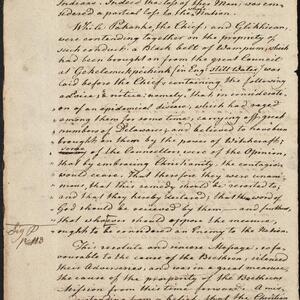 Indians. Indeed the loss of this Man, was con-
sidered a partial loss to the Nation.
While Pakanke, the Chief, and Glikhican,
were contending together on the propriety of
such conduct: a Black belt of Wampum, which
had been brought on from the great Council
at Gekelemukpechunk for
laid before the Chiefs, containing the following
advice, & notice; namely, that in considerate-
ion of an epidemical disease, which had raged
among them for some time, carrying off great
numbers of Delawares, and believed to have been
brought on them by the power of Witchcraft;
of the Councillors were of the Opinion,
that by embracing Christianity, the contagion
would cease. That therefore they were unani-
mous, that this remedy should be resorted to,
and that they hereby declared, that the word of
God should be received by them — and further,
that whoever should oppose the measure,
ought to be considered an Enemy to the Nation.
This resolute and sincere Message, fa-
vourable to the cause of the Brethren, silenced
their Adversaries, and was in a great measure
the cause of the prosperity of the Brethren's
Mission from this time forward. A mis-
that the Christian